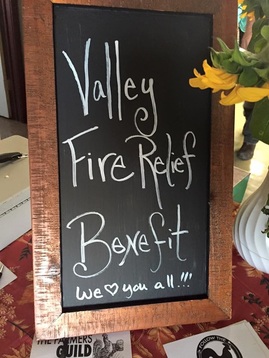 Valley
Fire Relief
Benefit
we ♡ you all!!!
THE FARMERS
GUILD